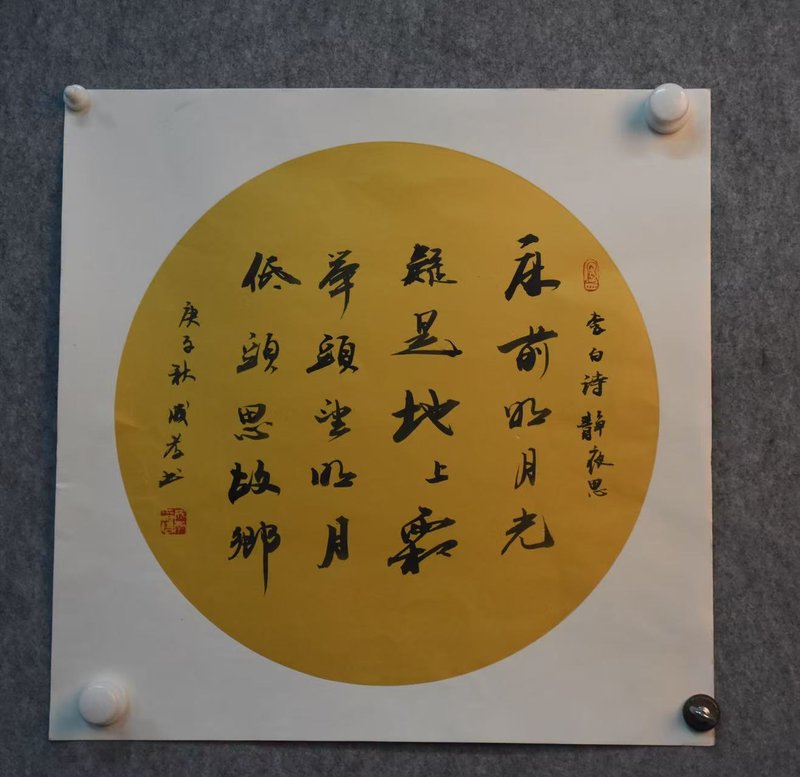 李白诗 静夜思
床前明月光
疑是地上霜
举頭望明月
低頭思故鄉
庚子秋